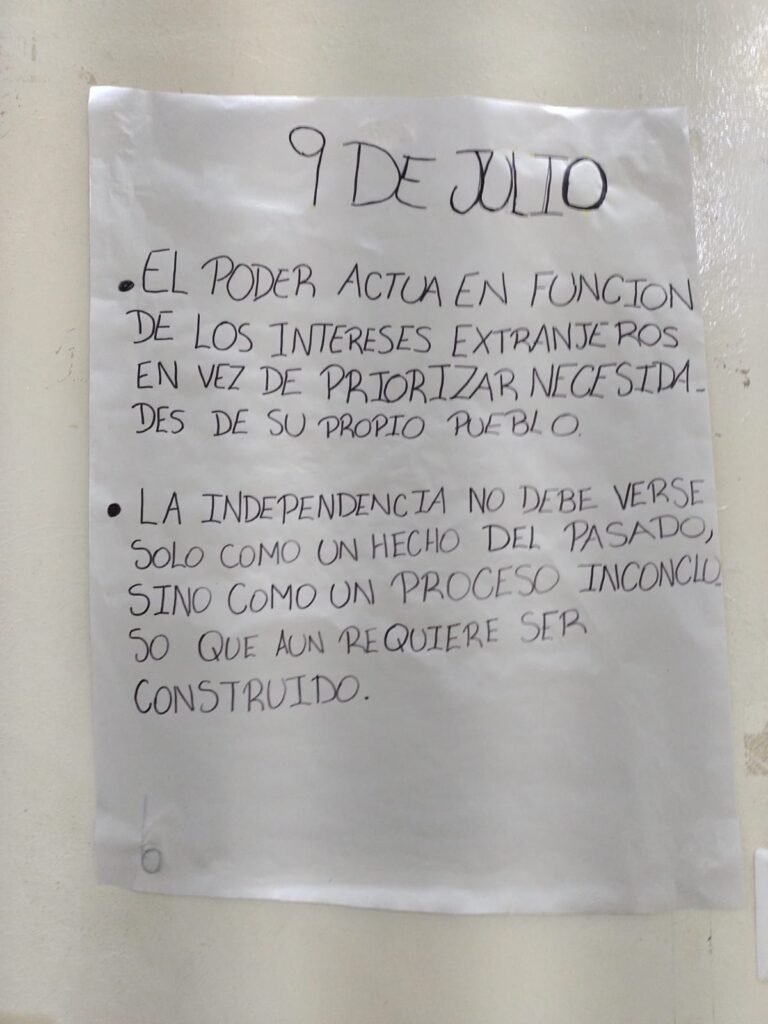 9 DE JULIO
• EL PODER ACTUA EN FUNCION
DE LOS INTERESES EXTRANJEROS
EN VEZ DE PRIORIZAR NECESIDA-
DES DE SU PROPIO PUEBLO.
• LA INDEPENDENCIA NO DEBE VERSE
SOLO COMO UN HECHO DEL PASADO,
SINO COMO UN PROCESO INCONCLU-
SO QUE AUN REQUIERE SER
CONSTRUIDO.